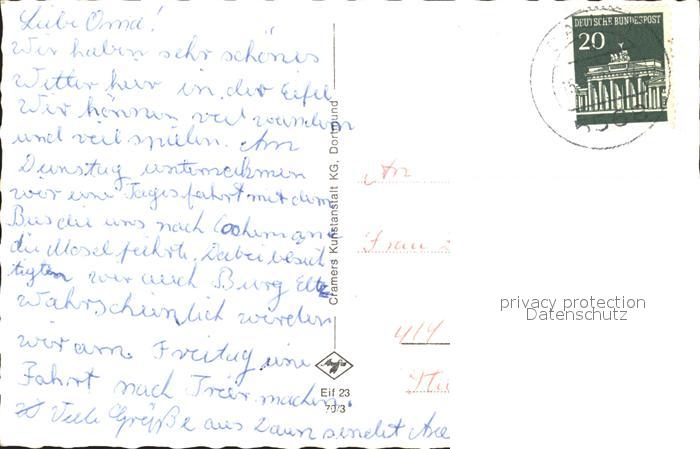 Liebe Oma!
Wir haben sehr schönes
Wetter hier in der Eifel
Wir können viel wandern
und viel spielen. Am
Dienstag unternahmen
wir eine Tagesfahrt mit dem
Bus die uns nach Cochem an
die Mosel führte. Dabei besich
tigten wir auch Burg Eltz
Wahrscheinlich werden
wir am Freitag eine
Fahrt nach Trier machen.
Viele Grüße aus Daun sendet
Cramers Kunstanstalt KG, Dortmund
Eif 23
70/3
DEUTSCHE BUNDESPOST
20
An
Frau
privacy protection
Datenschutz